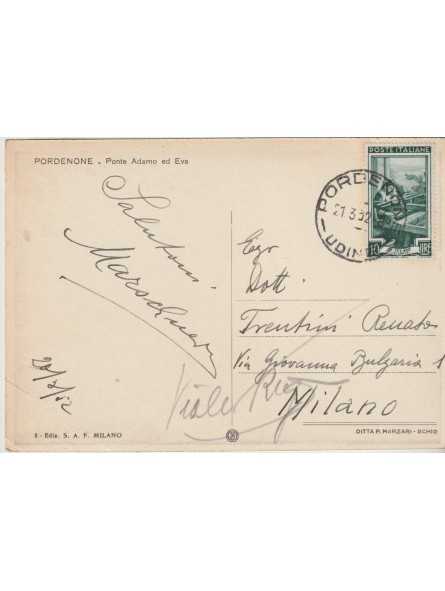 PORDENONE - Ponte Adamo ed Eva
POSTE ITALIANE
10 LIRE
PORDENONE
21.3.52
UDINE
Salutoni
Egr
Dott
Trentini Renato
Via Giovanna Bulgaria 1
Milano
Viale
20/3/52
8 - Ediz. S. A. F. MILANO
DITTA P. MARZARI - SCHIO